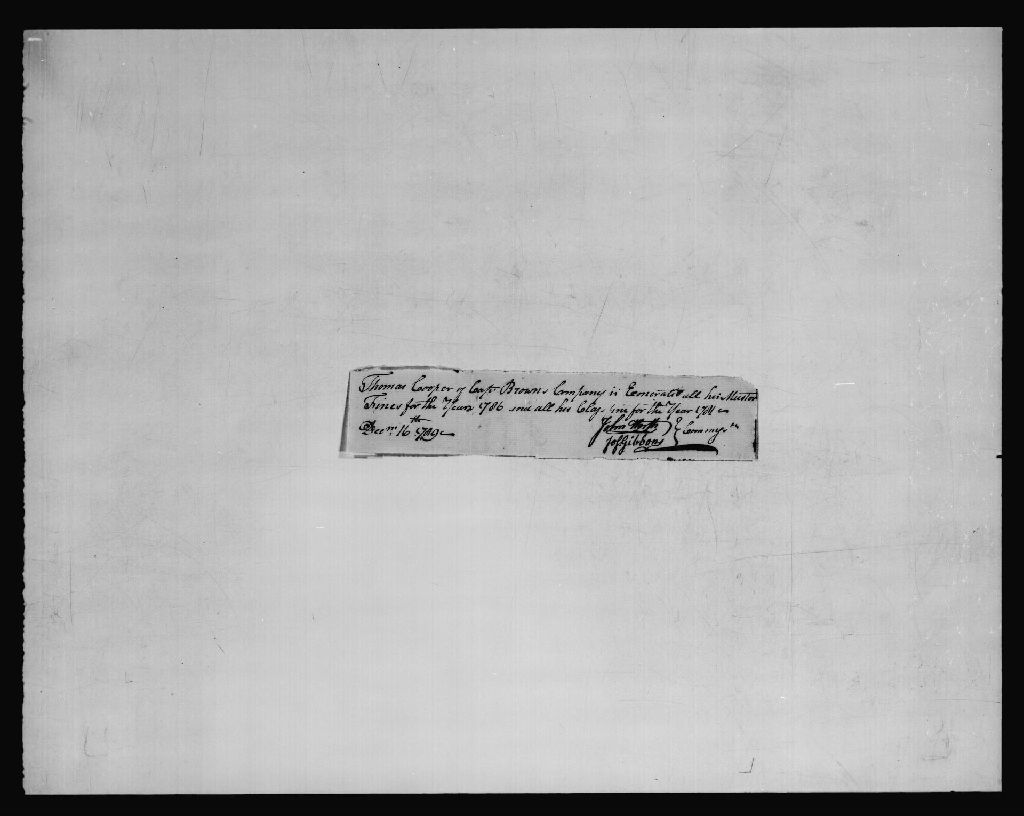 Thomas Cooper of Capt Browns Company is Exonerated all his Muster
Fines for the Year 1786 and all his Class fine for the Year
Decmr 16th
John
Jos Gibbons